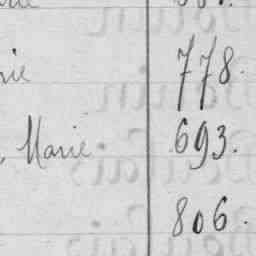 778.
, Marie 693.
806.